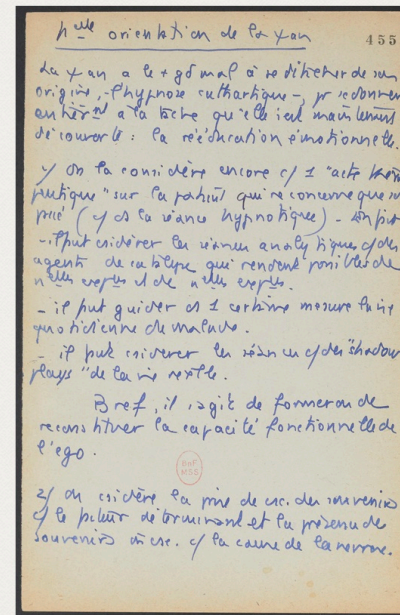 nelle orientation de la ψan
455
La ψan a le + gd mal à se détacher de son
origine, - l'hypnose cathartique -, pr se donner
entièrt à la tâche qu'elle vient maintenant
découverte : la rééducation émotionnelle.
1/ On la considère encore c/ 1 "acte théra
peutique" sur la patient qui ne concerne que
passé (c/ ds la séance hypnotique) -
- il put csidérer les séances analytiques c/ des
agents de catalyse qui rendent possibles de
nelles expces et de nelles expces.
- il put guider ds 1 certaine mesure la vie
quotidienne du malade.
- il put csiderer les séances c/ des "shadow
plays" de la vie réelle.
Bref, il s'agit de former ou de
reconstituer la capacité fonctionnelle de
l'ego.
BnF
MSS
2/ On csidère la prise de csc. des souvenirs
c/ le facteur déterminant et la présence de
souvenirs incsc. c/ la cause de la névrose.